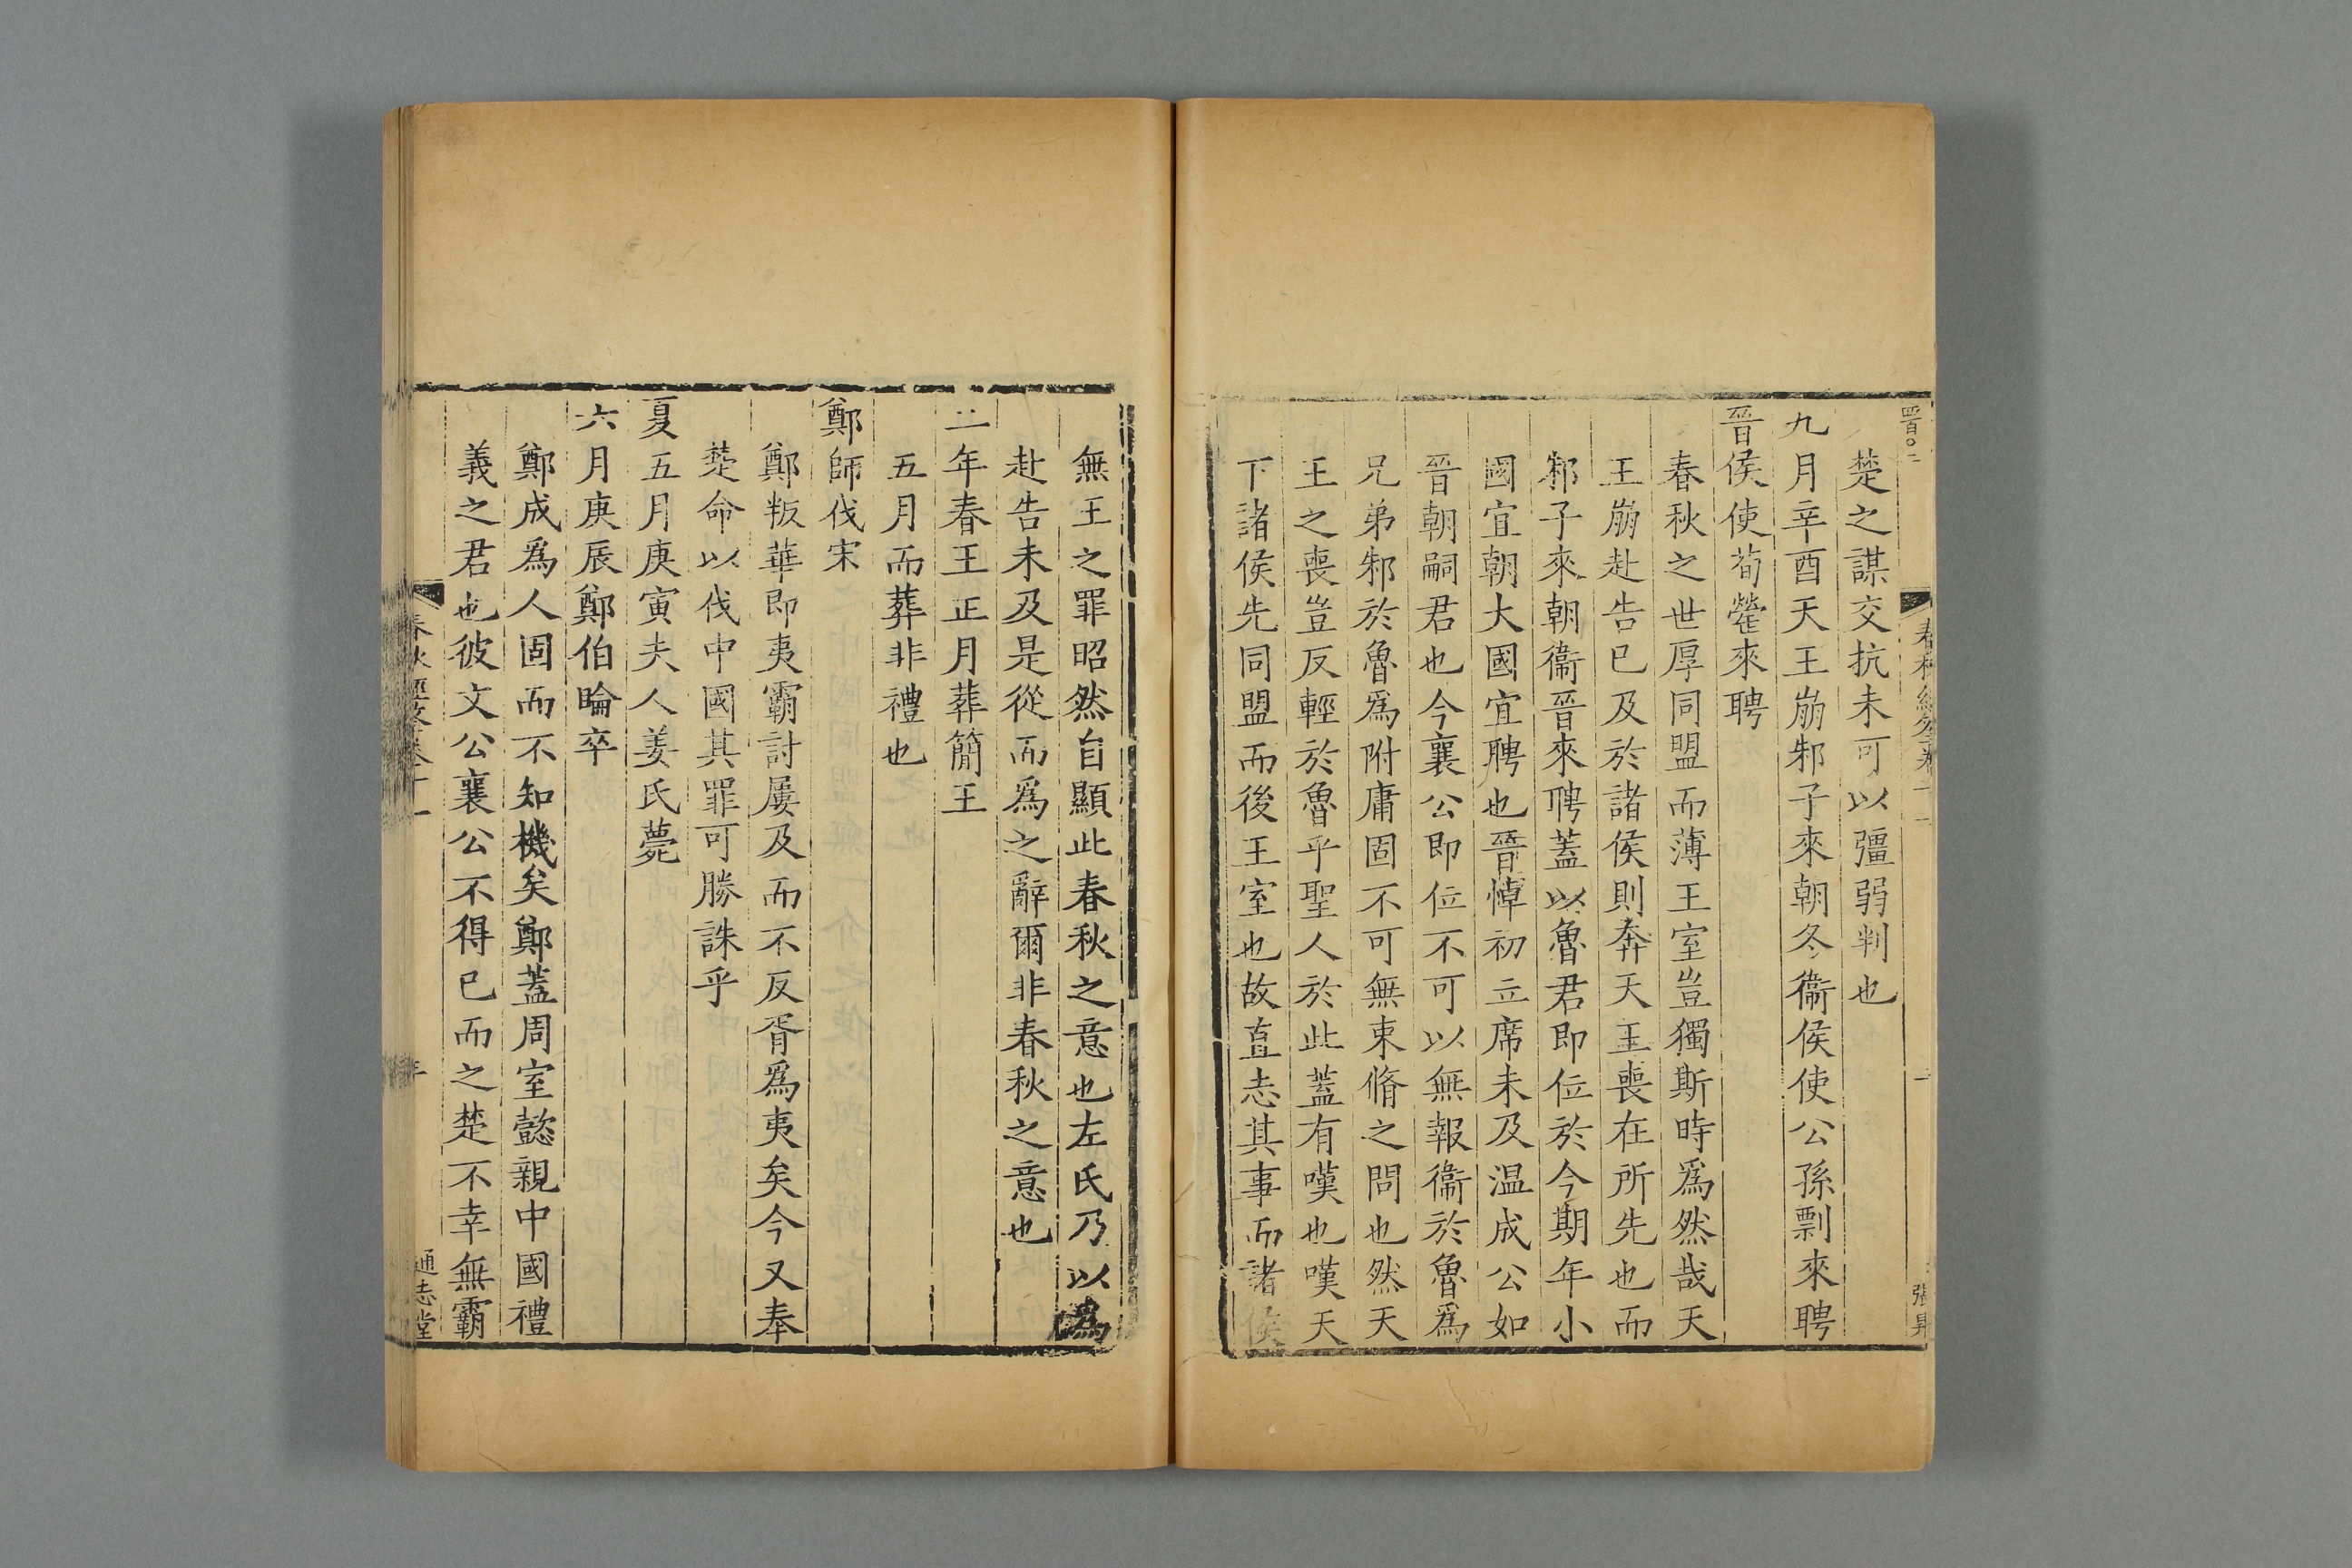 楚之謀交抗未可以彊弱判也
九月辛酉天王崩邾子來朝冬衞侯使公孫剽來聘
晉侯使荀罃來聘
春秋之世厚同盟而薄王室豈獨斯時爲然哉天
王崩赴告已及於諸侯則奔天王喪在所先也而
邾子來朝衞晉來聘蓋以魯君即位於今期年小
國宜朝大國宜聘也晉悼初立席未及温成公如
晉朝嗣君也今襄公即位不可以無報衞於魯爲
兄弟邾於魯爲附庸固不可無束脩之問也然天
王之喪豈反輕於魯乎聖人於此蓋有嘆也嘆天
下諸侯先同盟而後王室也故直志其事而諸侯
無王之罪昭然自顯此春秋之意也左氏乃以爲
赴告未及是從而爲之辭爾非春秋之意也
二年春王正月葬簡王
五月而葬非禮也
鄭師伐宋
鄭叛華即夷霸討屢及而不反胥爲夷矣今又奉
楚命以伐中國其罪可勝誅乎
夏五月庚寅夫人姜氏薨
六月庚辰鄭伯睔卒
鄭成爲人固而不知機矣鄭蓋周室懿親中國禮
義之君也彼文公襄公不得已而之楚不幸無霸
通志堂